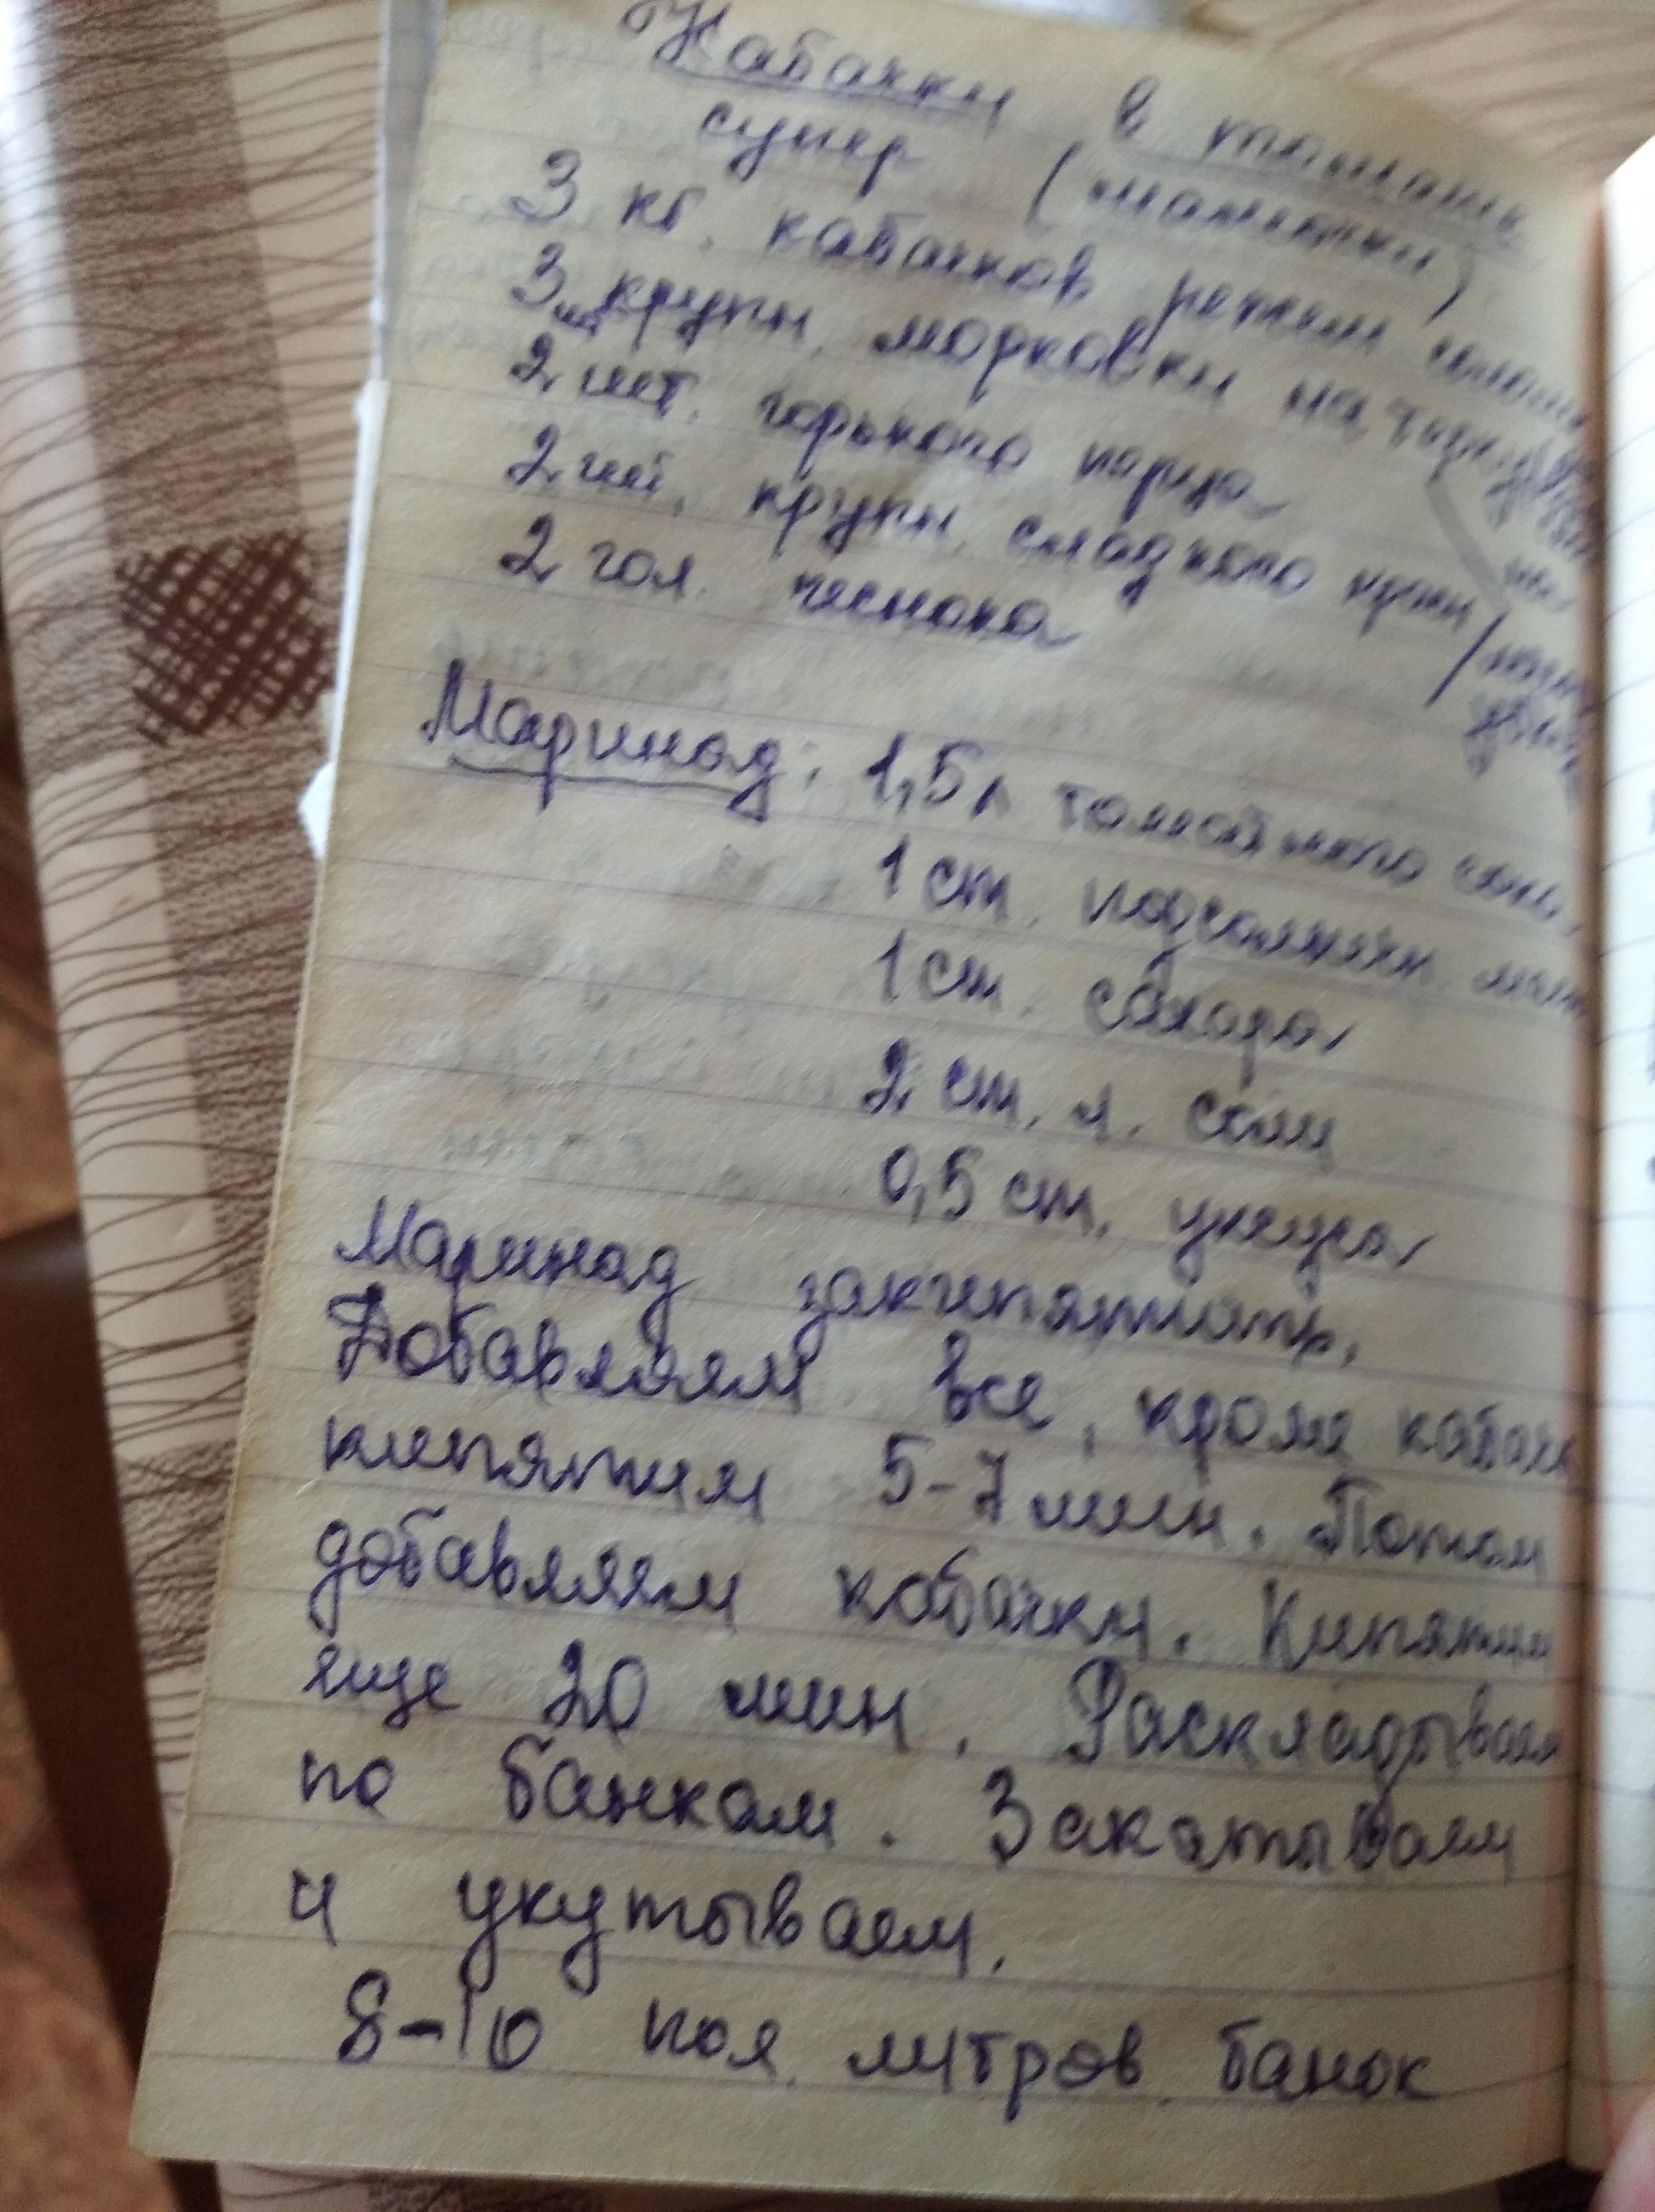 Кабачки в томате
супер (
3 кг. кабачков режем
3 шт крупн. морковки на
2 шт. горького перца
2 шт. крупн. сладкого
2 гол. чеснока
Маринад: 1,5 л томатного сока
1 ст. подсолнечн.
1 ст. сахара
2 ст. л. соли
0,5 ст. уксуса
Маринад закипятить,
Добавляем все, кроме
кипятим 5-7 мин. Потом
добавляем кабачки. Кипятим
еще 20 мин. Раскладываем
по банкам. Закатываем
и укутываем.
8-10 пол. литров. банок